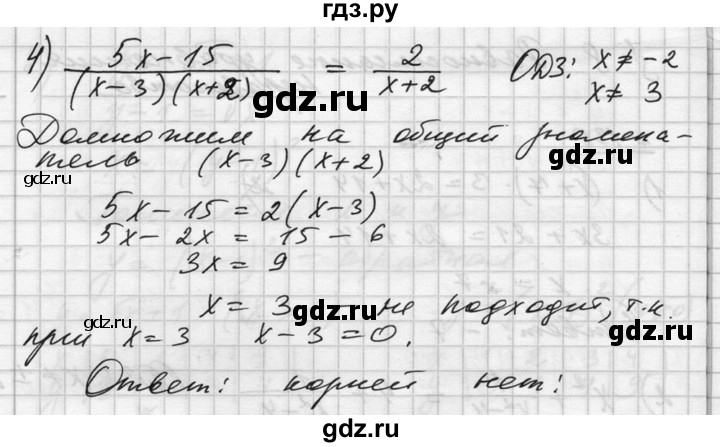 гдз.ру
4) (5x-15)/((x-3)(x+2)) = 2/(x+2) ОДЗ: x ≠ -2
x ≠ 3
Домножим на общий знамена-
тель (x-3)(x+2)
5x-15=2(x-3)
5x-2x = 15-6
3x=9
x=3 - не подходит, т.к.
при x=3 x-3=0.
Ответ: корней нет!
gdz.ru
gdz.ru
gdz.ru
gdz.ru
gdz.ru
gdz.ru